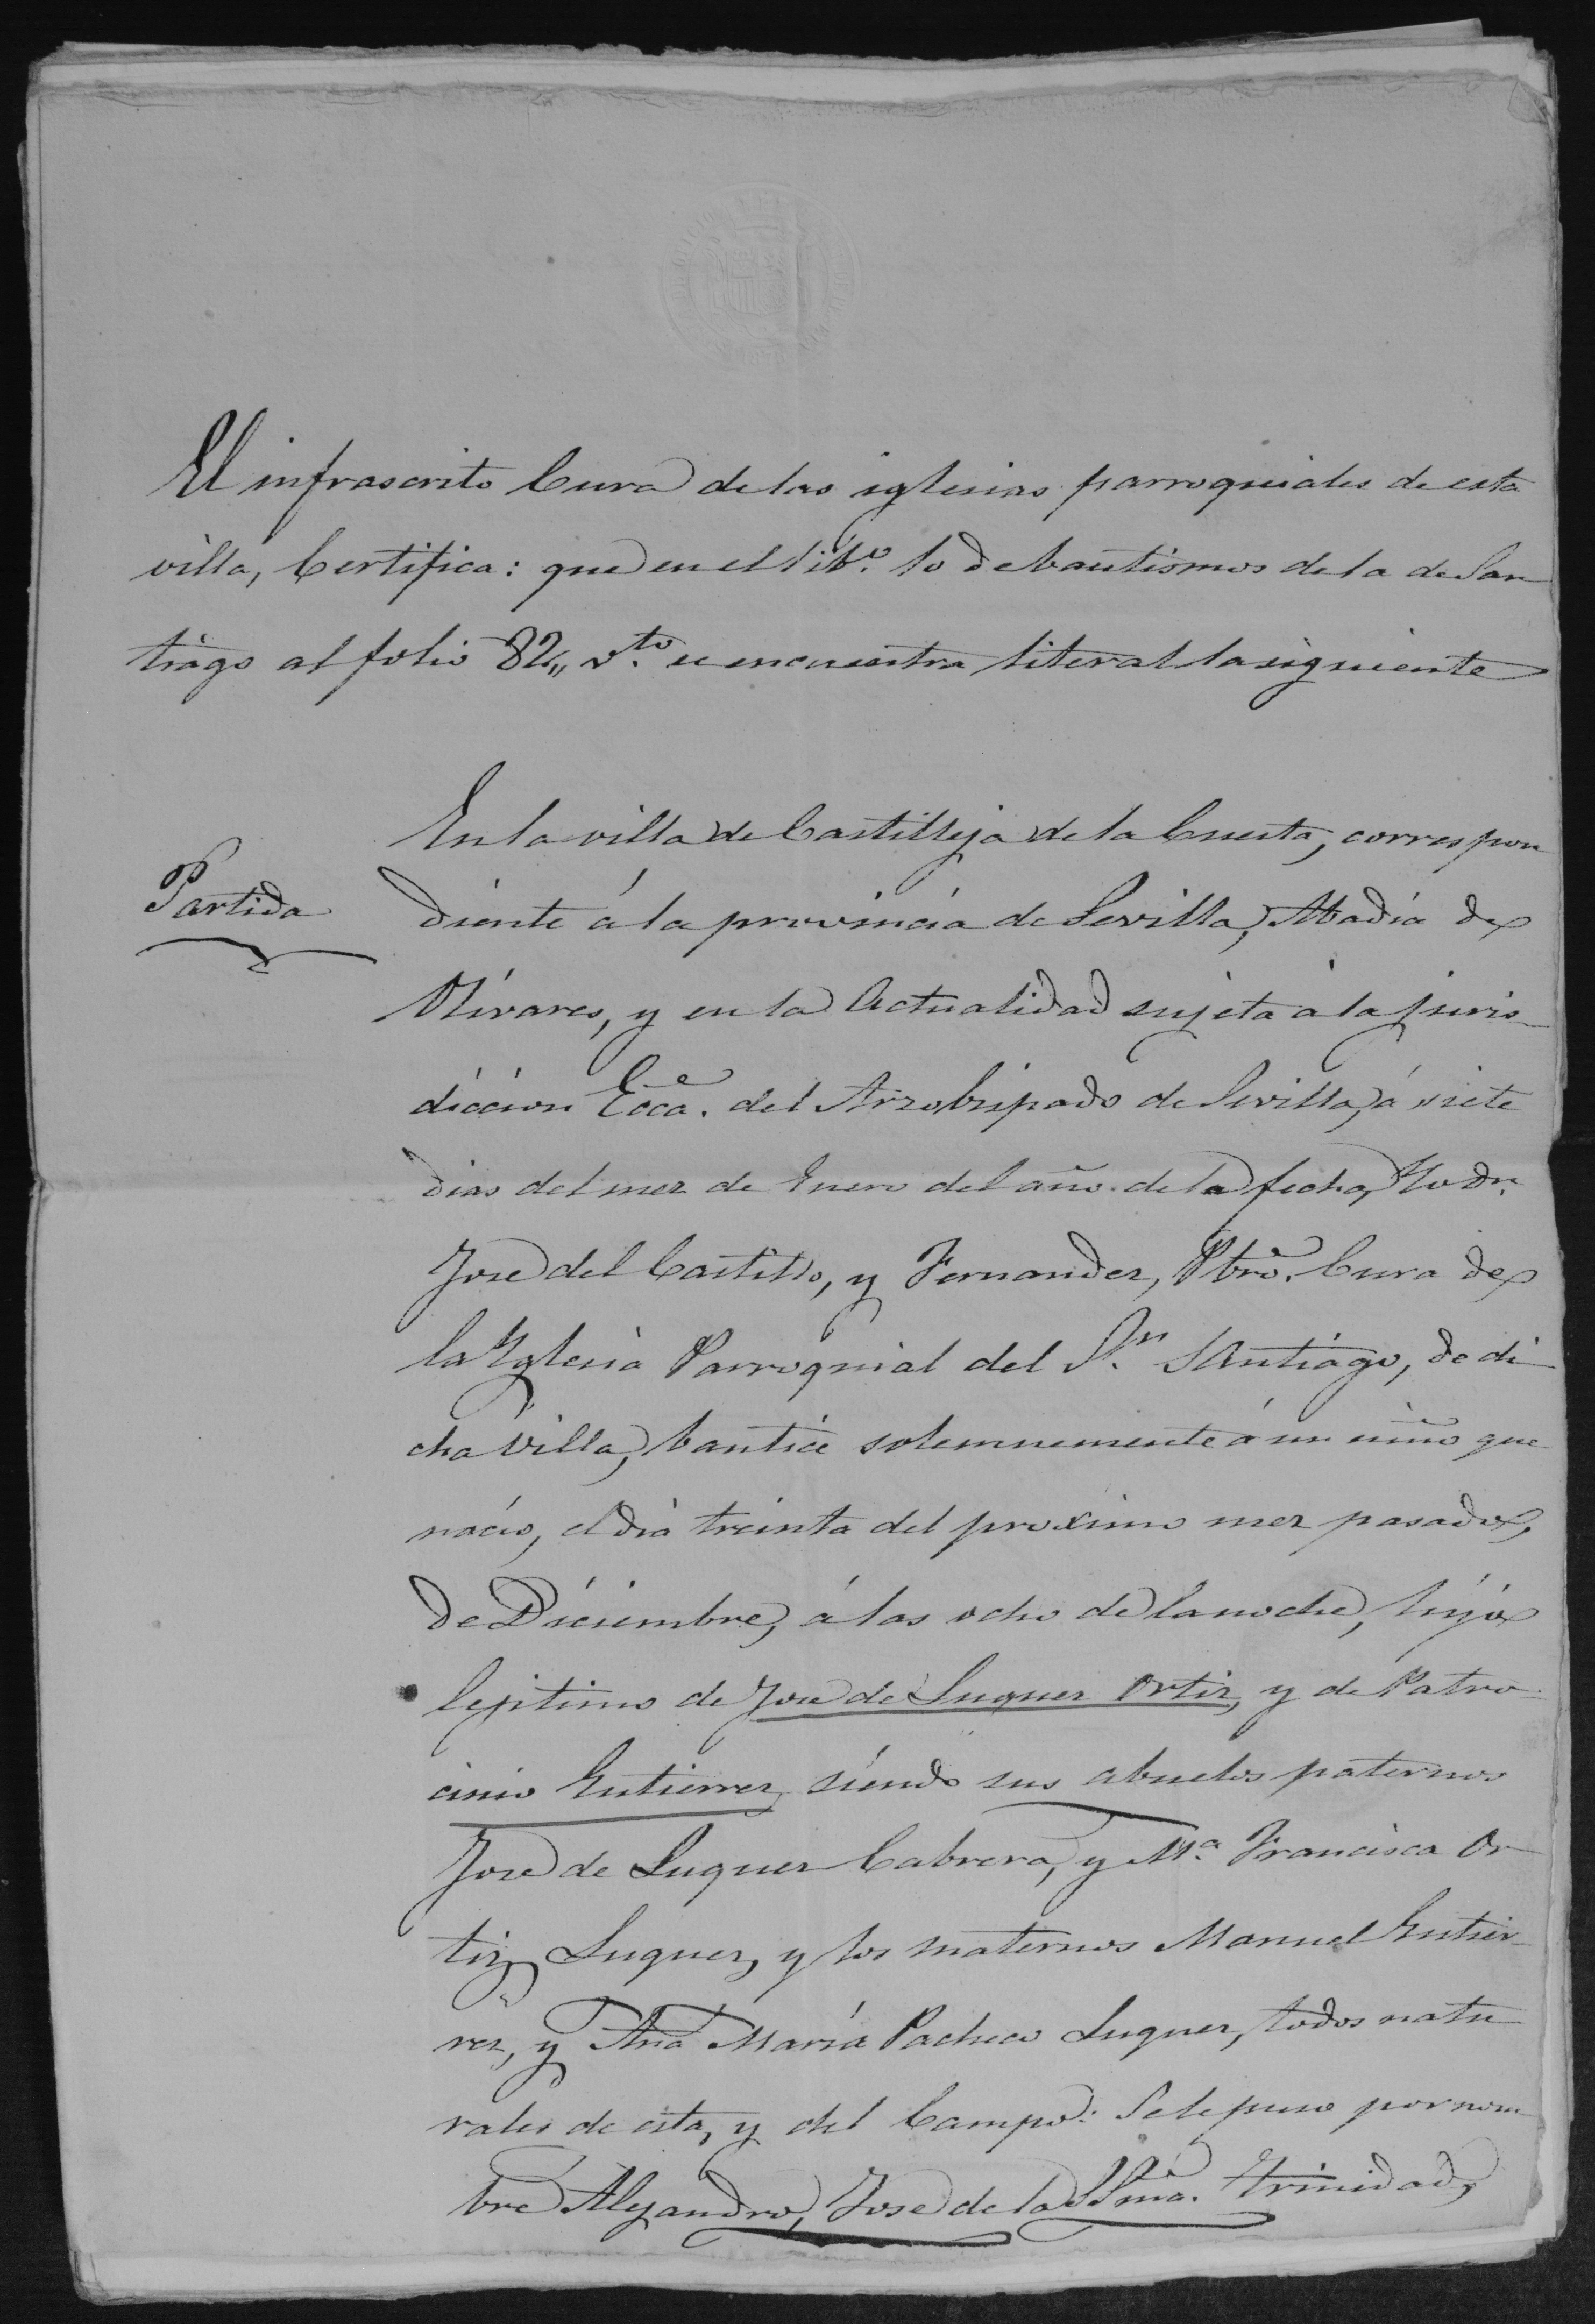 El infrascrito Cura de las iglesias parroquiales de esta
villa, Certifica: que en el lib.º 10 de bautismos de la de San
tiago al folio 82,, v.to se encuentra literal la siguiente
Partida
En la villa de Castilleja de la Cuesta, correspon
diente á la provincia de Sevilla, Abadia de
Olivares, y en la Actualidad sujeta á la juris-
diccion Ecca. del Arzobispado de Sevilla, á siete
dias del mez de Enero del año de la fecha, Yo Dn.
Jose del Castillo, y Fernandez, Pbro. Cura de
la Yglesia Parroquial del Sr. Santiago, de di
cha Villa, bautice solemnemente á un niño que
nacio, el dia treinta del proximo mez pasado,
de Diciembre, á las ocho de la noche, hijo
legitimo de Jose de Luquez Ortiz, y de Patro
cinio Gutierrez, siendo sus abuelos paternos
Jose de Luquez Cabrera, y Ma. Francisca Or
tiz Luquez, y los maternos Manuel Gutier-
rez, y Ana Maria Pacheco Luquez, todos natu
rales de esta, y del Campo: Se le puso por nom
bre Alejandro, Jose de la SSma. Trinidad,